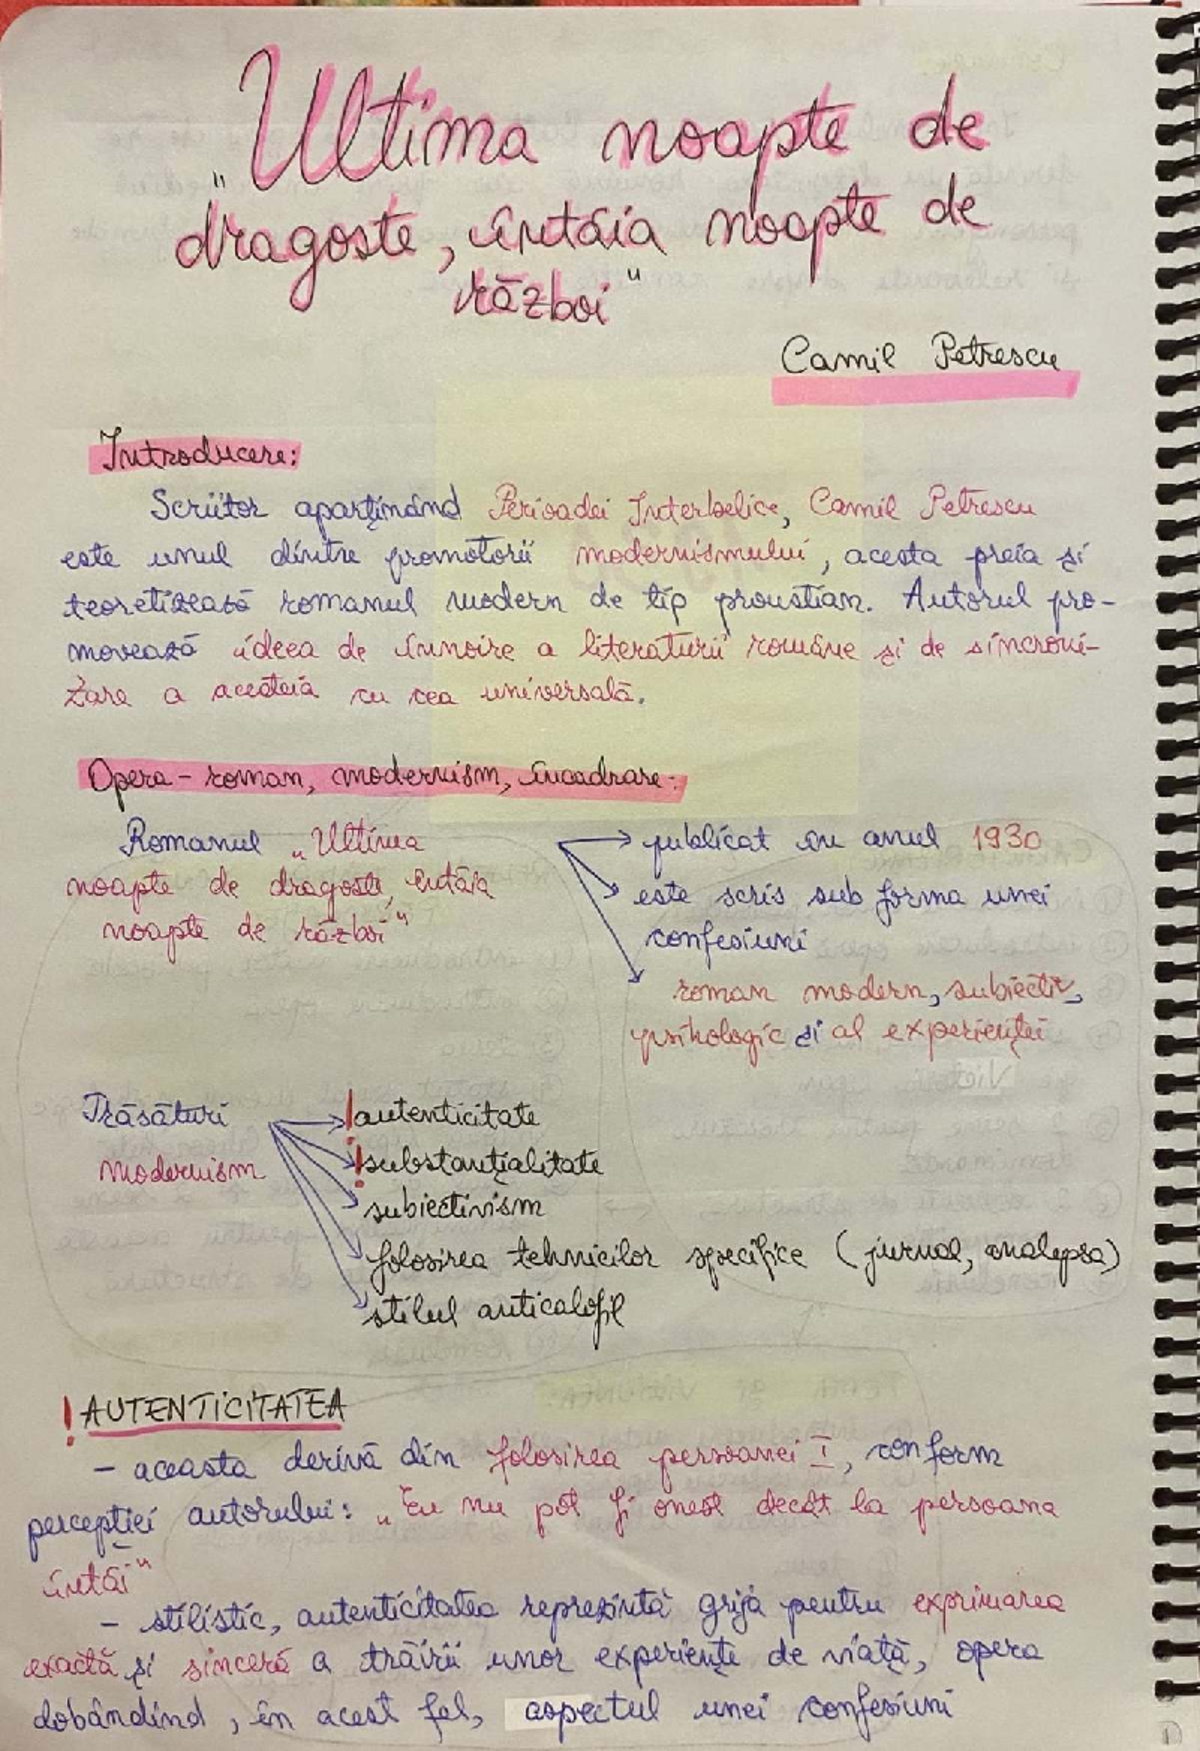 „Ultima noapte de
dragoste, întâia noapte de
război"
Camil Petrescu
Introducere:
Scriitor aparținând Perioadei Interbelice, Camil Petrescu
este unul dintre promotorii modernismului, acesta preia și
teoretizează romanul modern de tip proustian. Autorul pro-
movează ideea de înnoire a literaturii române și de sincroni-
zare a acesteia cu cea universală.
Opera - roman, modernism, încadrare:
Romanul „Ultima
noapte de dragoste, întâia
noapte de război"
publicat în anul 1930
este scris sub forma unei
confesiuni
roman modern, subiectiv,
psihologic și al experienței
Trăsături
modernism
! autenticitate
! substanțialitate
subiectivism
folosirea tehnicilor specifice (jurnal, analepsa)
stilul anticalofil
! AUTENTICITATEA
- aceasta derivă din folosirea persoanei I, conform
percepției autorului: „Eu nu pot fi onest decât la persoana
întâi"
- stilistic, autenticitatea reprezintă grija pentru exprimarea
exactă și sinceră a trăirii unor experiențe de viață, opera
dobândind, în acest fel, aspectul unei confesiuni